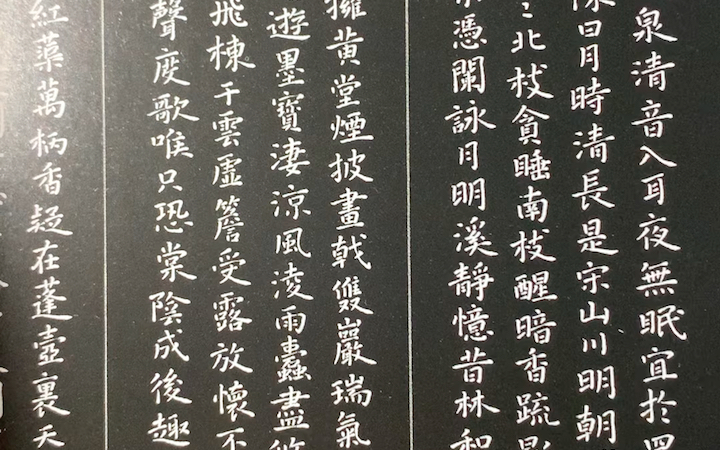 泉清音入耳夜無眠宜於四
日月時清長是宋山川明朝
北枝貪睡南枝醒暗香疏影
憑闌詠月明溪靜憶昔林和
擁黃堂煙披畫戟雙巖瑞氣
遊墨寶淒涼風淩雨蠹盡
飛棟千雲虛簷受露放懷不
聲度歌喉只恐棠陰成後趣
紅蕖萬柄香疑在蓬壺裏天